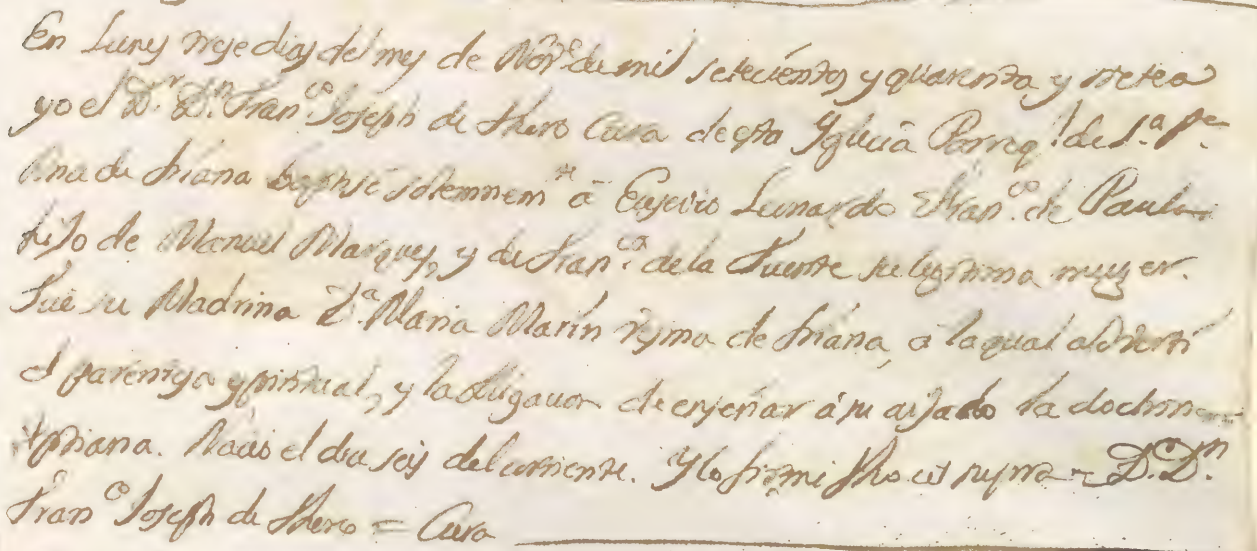 En Lunes trese dias del mes de Nov.e de mil setecientos y quarenta y siete a
yo el D.r D.n Fran.co Joseph de Thero Cura de esta Yglecia Parroq.l de S.a S.ra
Ana de triana baptisé solemnem.te â Eusevio Leonardo Fran.co de Paula
hijo de Manuel Marques, y de Fran.ca de la Fuente su legitima muger.
Fue su Madrina D.a Maria Marin Vezina de triana, a la qual adverti
el parentesco espiritual, y la obligacion de enseñar á su aijado la doctrina
xptiana. Nacio el dia seis del corriente. Y lo firmé fho ut supra = D.r D.n
Fran.co Joseph de Thero = Cura